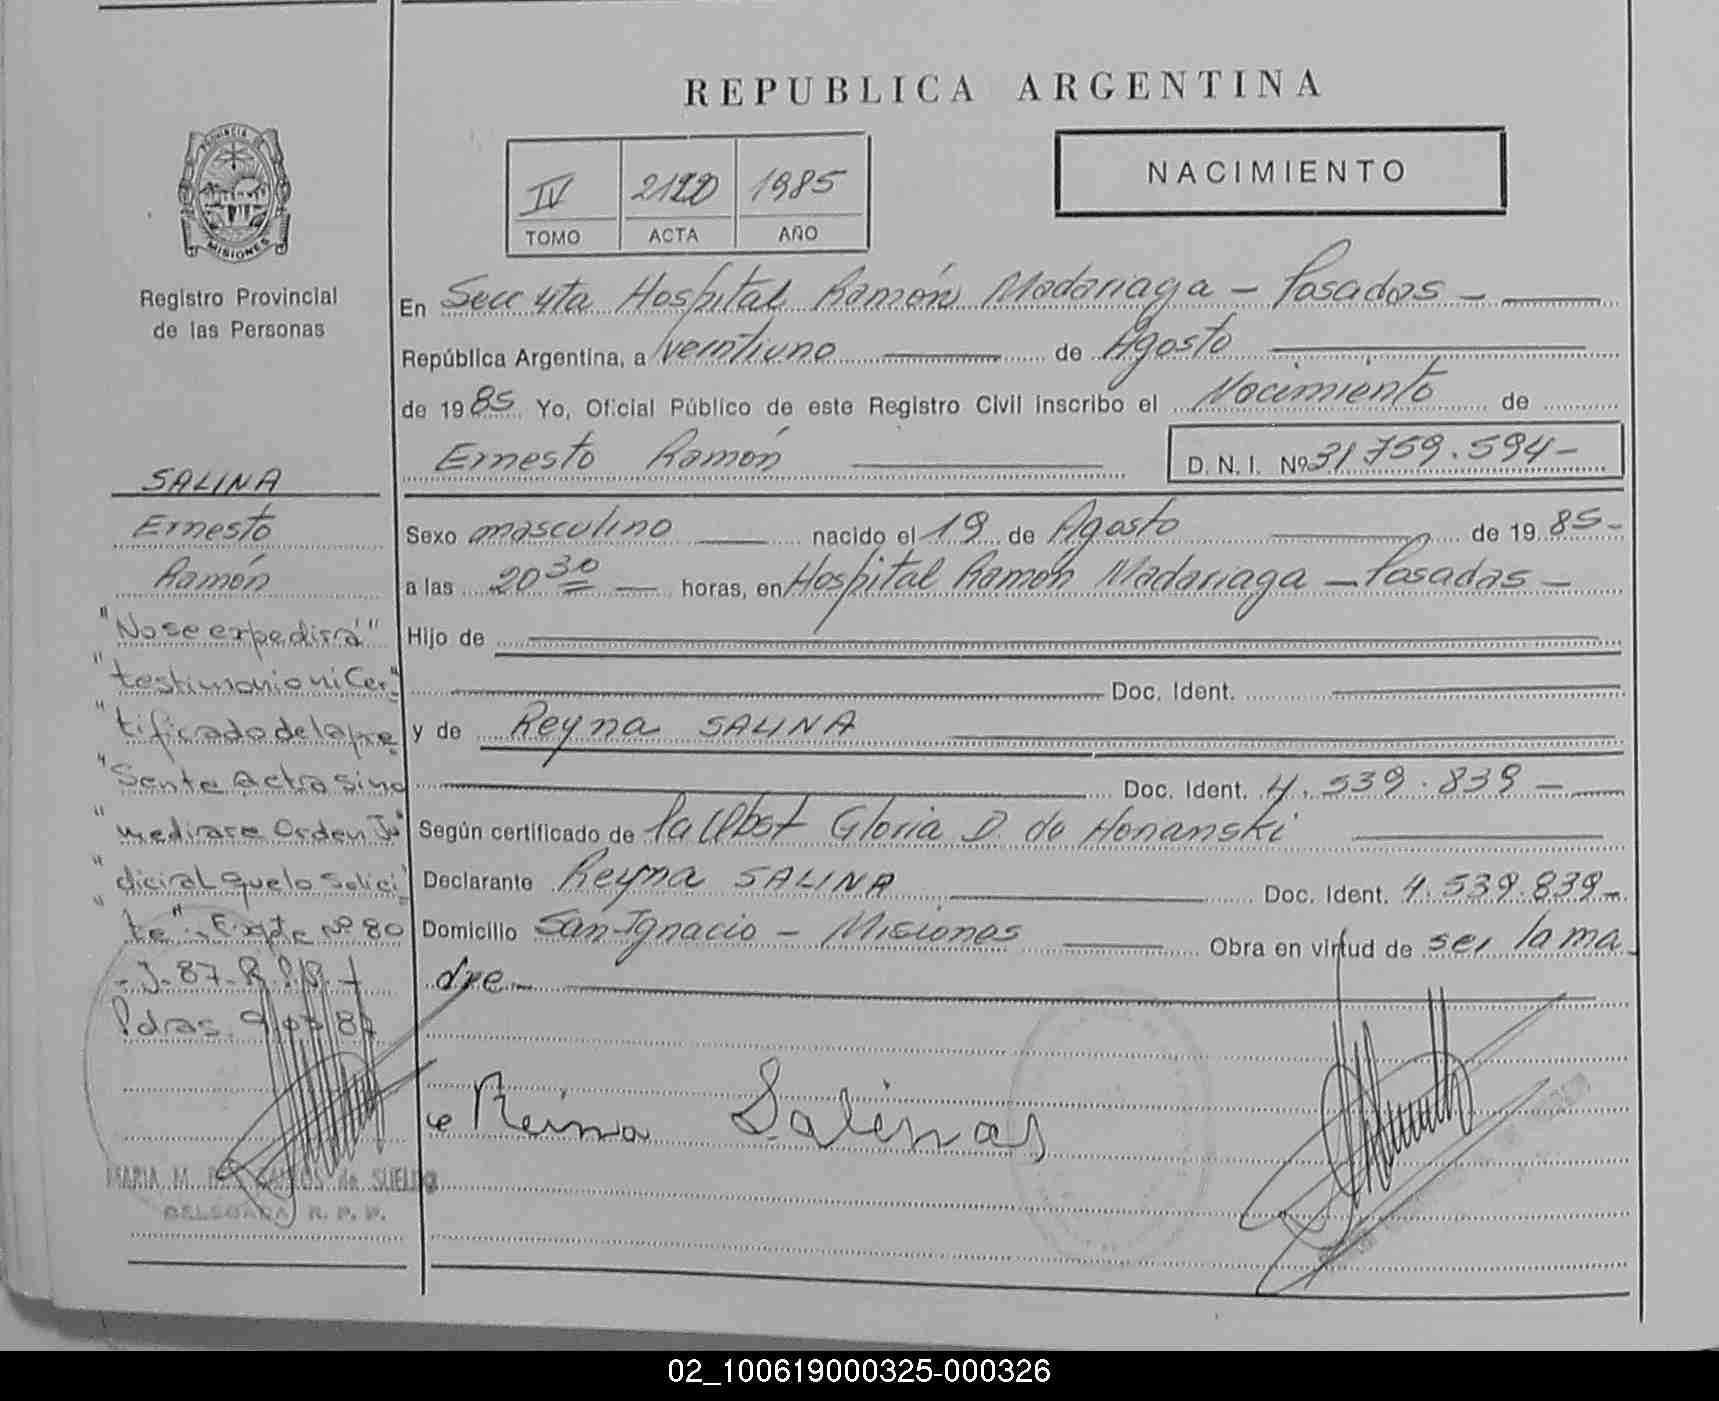 REPUBLICA ARGENTINA
NACIMIENTO
IV 2120 1985
TOMO ACTA AÑO
PROVINCIA DE
MISIONES
Registro Provincial
de las Personas
En Secc 4ta Hospital Ramón Madariaga - Posadas -
República Argentina, a veintiuno de Agosto
de 1985 Yo, Oficial Público de este Registro Civil inscribo el Nacimiento de
Ernesto Ramón D. N. I. Nº 31.759.594-
Sexo masculino nacido el 19 de Agosto de 1985-
a las 20 30 horas, en Hospital Ramón Madariaga - Posadas -
Hijo de
Doc. Ident.
y de Reyna SALINA
Doc. Ident. 4.539.839-
Según certificado de la Obst Gloria D. de Honanski
Declarante Reyna SALINA Doc. Ident. 4.539.839-
Domicilio San Ignacio - Misiones Obra en virtud de ser la ma
dre
Reina Salinas
SALINA
Ernesto
Ramón
"No se expedirá"
"testimonio ni Cer"
"tificado de la pre
"Sente acta sino
"medirare Orden Ju"
"dicial que lo Solici"
"te". Expte Nº 80
- J- 87- R.P.P.
Pdas. 9 87
MARIA M. de SUELDO
DELEGADA R. P. P.
02_100619000325-000326